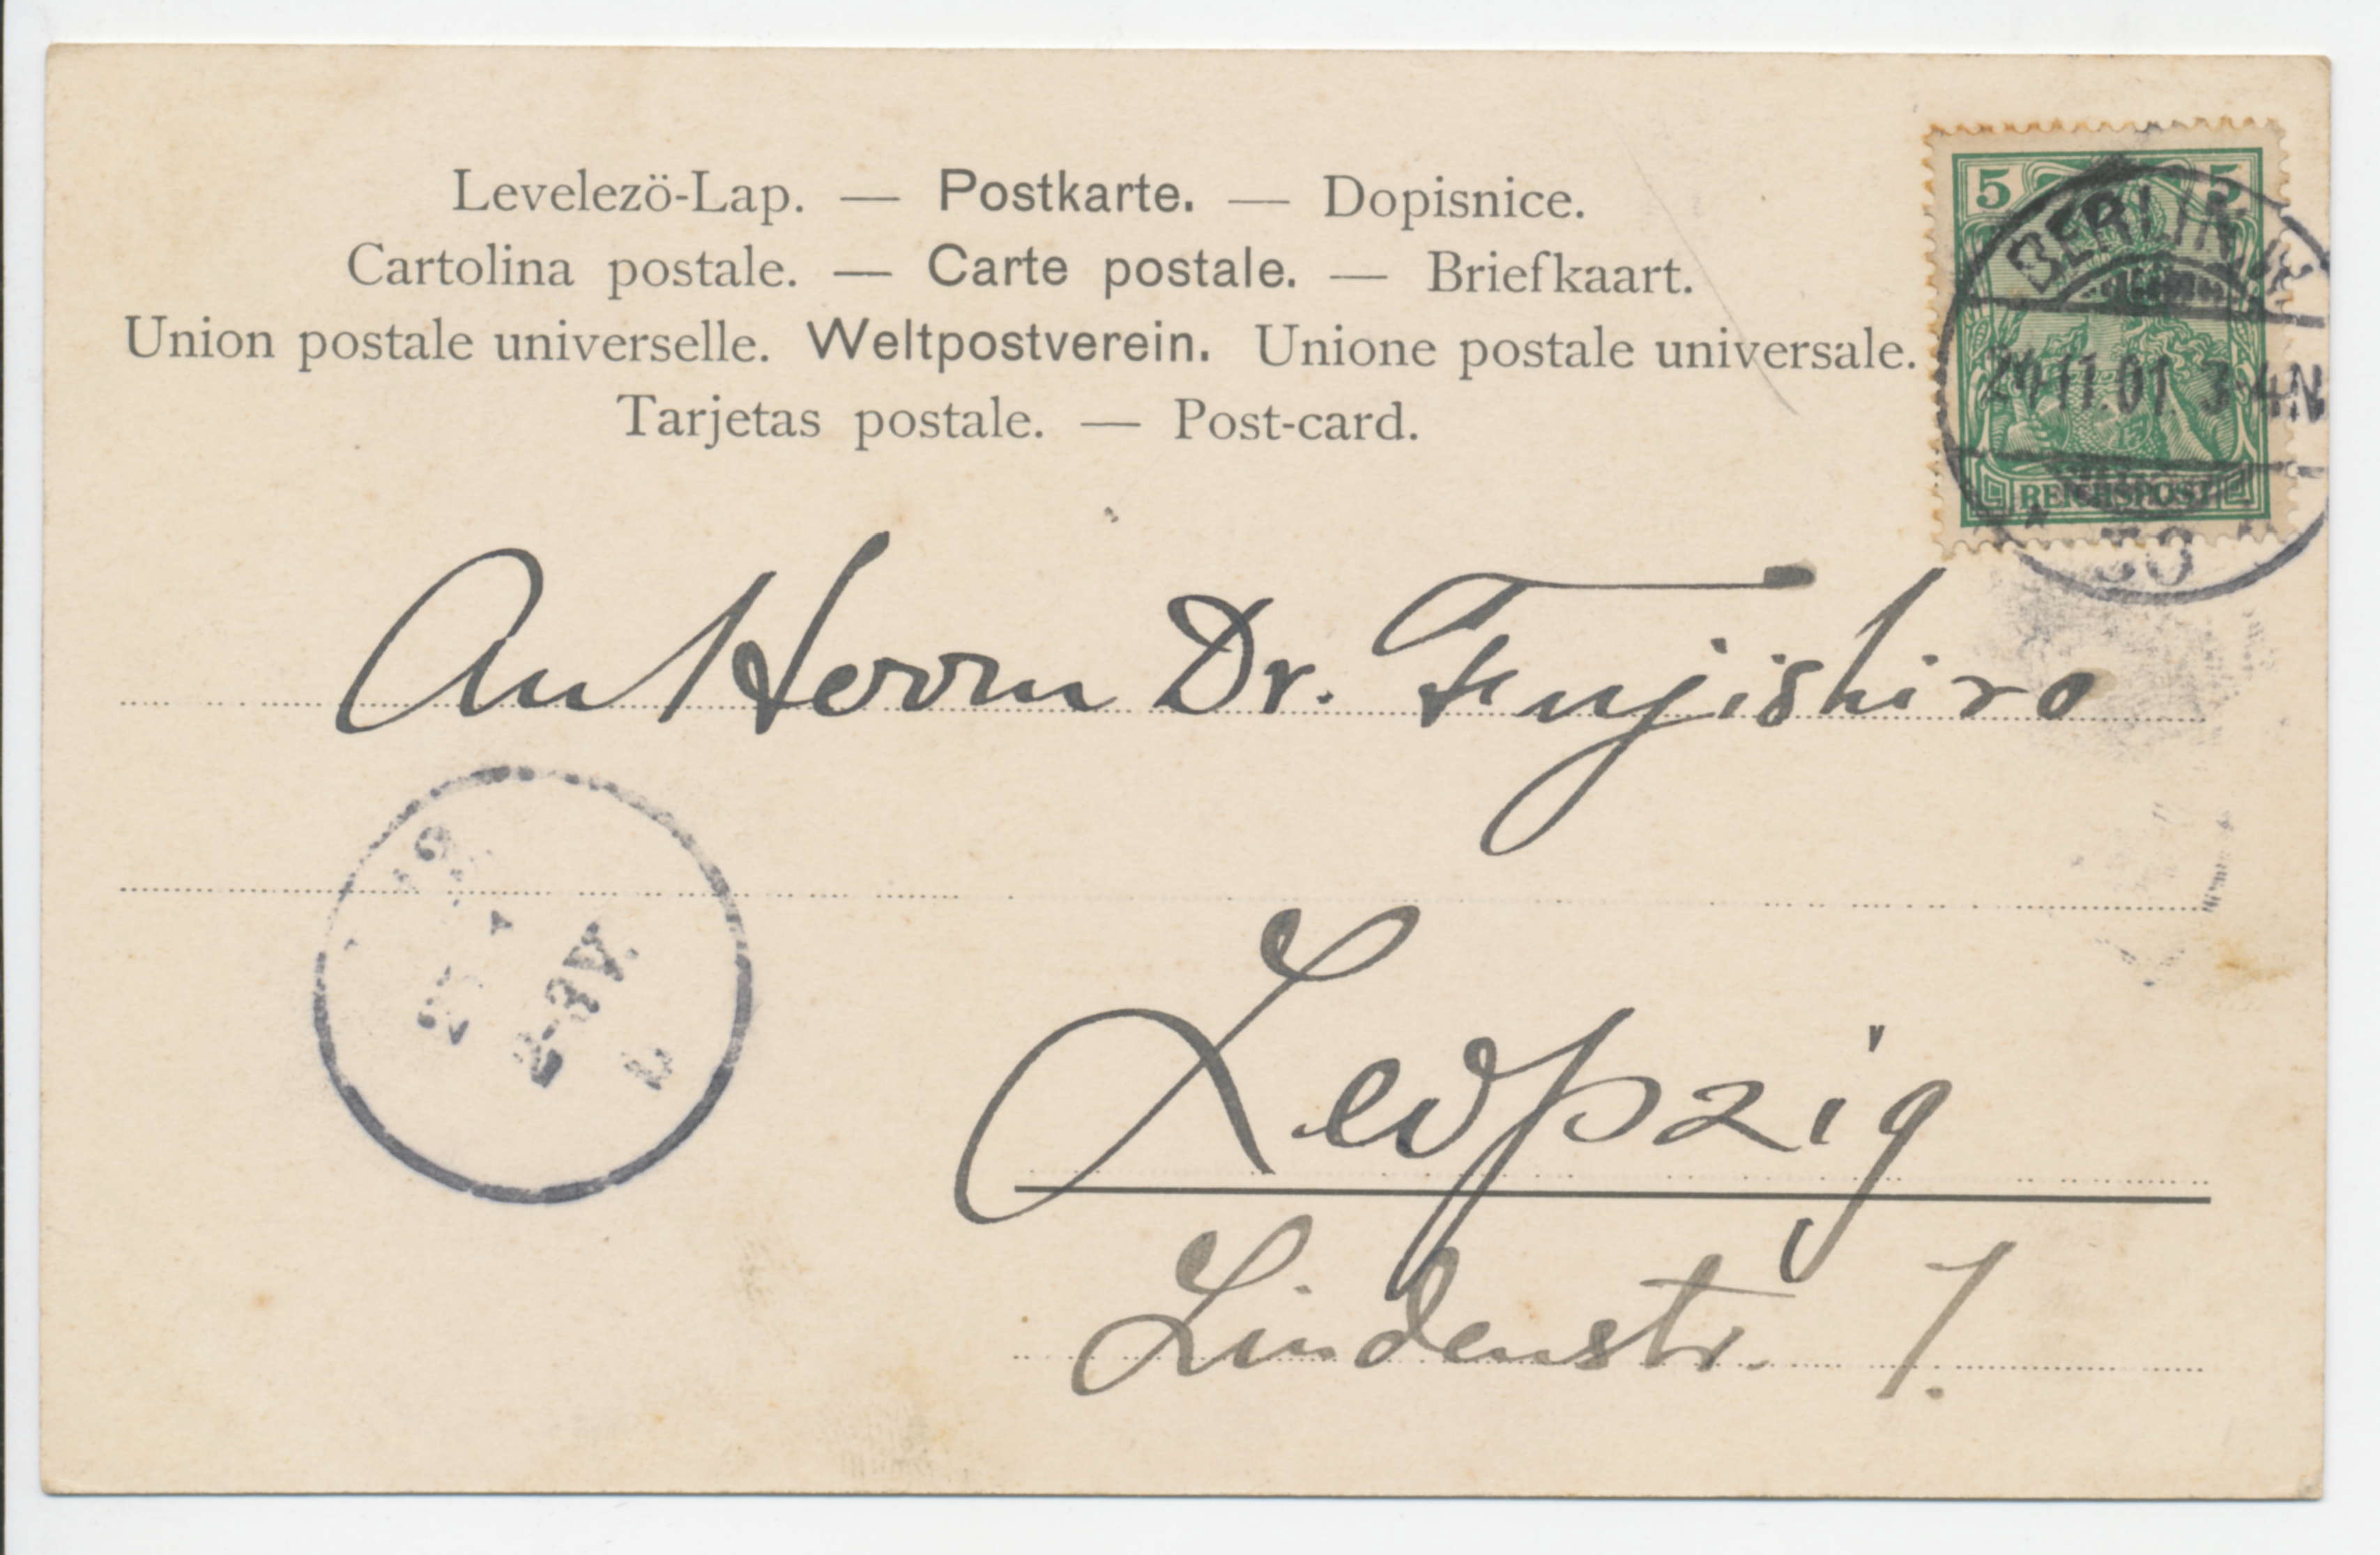 Levelezö-Lap. — Postkarte. — Dopisnice.
Cartolina postale. — Carte postale. — Briefkaart.
Union postale universelle. Weltpostverein. Unione postale universale.
Tarjetas postale. — Post-card.
5 5
BERLIN
24.11.01. 3-4N
REICHSPOST
An Herrn Dr. Fujishiro
2-3V.
Leipzig
Lindenstr. 1.